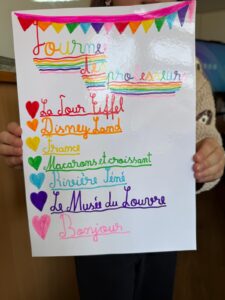 Journé
des professeur
La Tour Eiffel
Disney Land
France
Macarons et croissant
Rivière Séné
Le Musée du Louvre
Bonjour